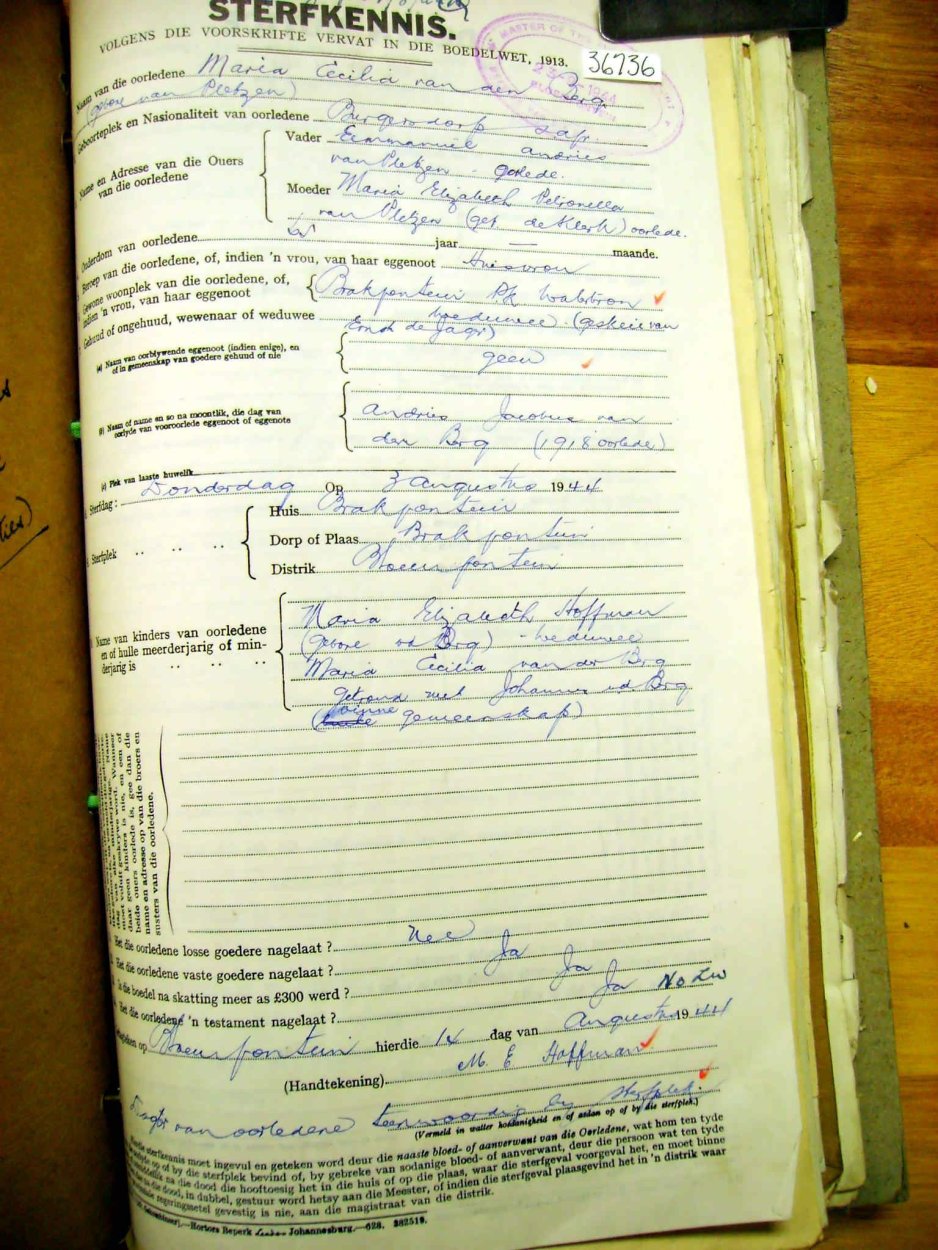 STERFKENNIS.
VOLGENS DIE VOORSKRIFTE VERVAT IN DIE BOEDELWET, 1913.
36736
MASTER OF THE
Naam van die oorledene Maria Cecilia van den Berg
(gebore van Pletzen)
Geboorteplek en Nasionaliteit van oorledene Burgersdorp S.afr.
Naam en Adresse van die Ouers van die oorledene
Vader Emmanuel Andries
van Pletzen - oorlede.
Moeder Maria Elizabeth Petronella
van Pletzen (geb. de Klerk) oorlede.
Ouderdom van oorledene jaar — maande.
Beroep van die oorledene, of, indien 'n vrou, van haar eggenoot Huisvrou
Gewone woonplek van die oorledene, of, indien 'n vrou, van haar eggenoot Brakfontein Pk
Gehuud of ongehuud, wewenaar of weduwee Weduwee (geskei van
de Jager)
(a) Naam van oorblywende eggenoot (indien enige), en of in gemeenskap van goedere gehuud of nie geen
(b) Naam of name en so na moontlik, die dag van oorlyde van vooroorlede eggenoot of eggenote
Andries Jacobus van
den Berg (1918 oorlede)
(c) Plek van laaste huwelik
Sterfdag: Donderdag Op 3 Augustus 1944
Sterfplek
Huis Brakfontein
Dorp of Plaas Brakfontein
Distrik Bloemfontein
Name van kinders van oorledene en of hulle meerderjarig of minderjarig is
Maria Elizabeth Hoffman
(gebore vd Berg) - weduwee
Maria Cecilia van der Berg
getroud met Johannes v.d. Berg
(binne gemeenskap)
daar geen kinders is nie, gee dan die
name en adresse op van die broers en
susters van die oorledene.
Het die oorledene losse goedere nagelaat? Nee
Het die oorledene vaste goedere nagelaat? Ja
Is die boedel na skatting meer as £300 werd? Ja
Het die oorledene 'n testament nagelaat? Ja
Gegeken op Bloemfontein hierdie 14 dag van Augustus 1944
(Handtekening) M. E. Hoffman
Dogter van oorledene teenwoordig by sterfplek.
(Vermeld in watter hoedanigheid en of aldan op of by die sterfplek.)
sterfkennis moet ingevul en geteken word deur die naaste bloed- of aanverwant van die Oorledene, wat hom ten tyde
op of by die sterfplek bevind of, by gebreke van sodanige bloed- of aanverwant, deur die persoon wat ten tyde
na die dood die hooftoesig het in die huis of op die plaas, waar die sterfgeval voorgeval het, en moet binne
die dood, in dubbel, gestuur word hetsy aan die Meester, of indien die sterfgeval plaasgevind het in 'n distrik waar
regeringsetel gevestig is nie, aan die magistraat van die distrik.
Hortors Beperk Johannesburg.—628. 382519.